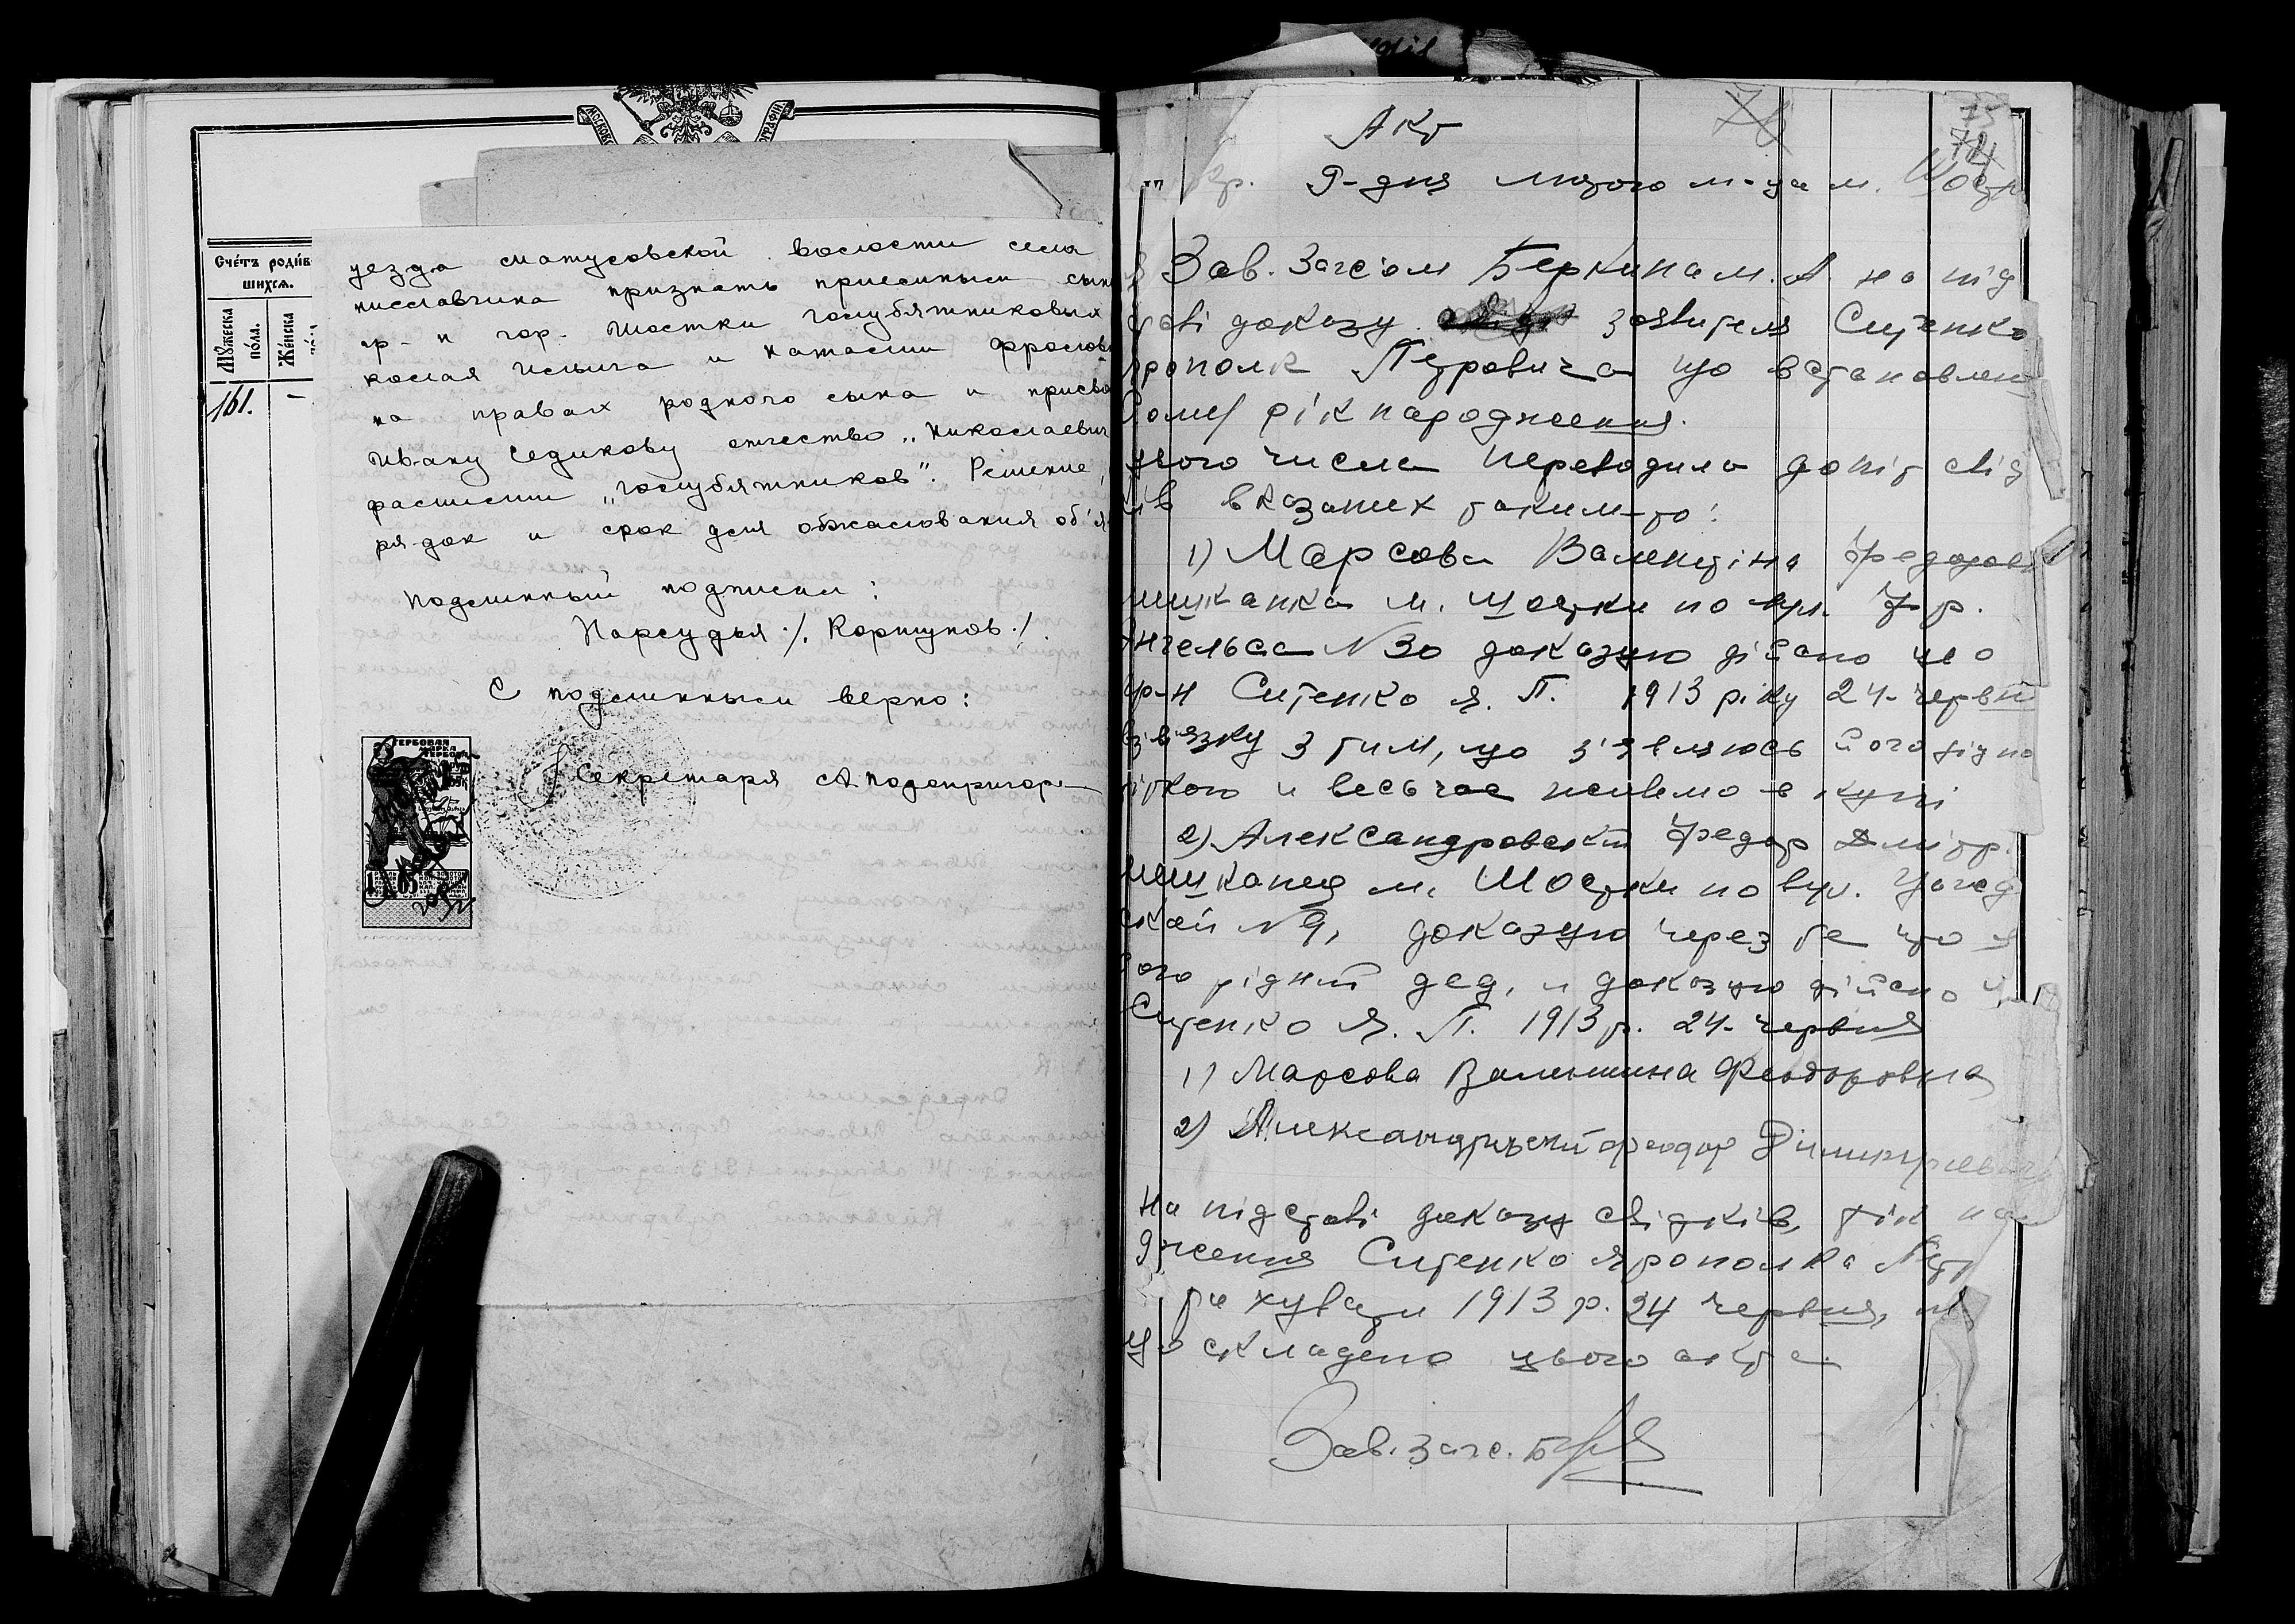 МОСКОВ
ОГРАФІИ
Сче́тъ роди́в
шихся.
Му́жеска
по́ла.
Же́нска
161.
-
уезда смотусовской волости села
ниславчина признать приемным сын
гр-н гор. Шостки Голубятниковых
колая Ильича и Наталии Фролов
на правах родного сына и присво
Ивану Седикову отчество "Николаевич
фамилии "Голубятников". Решение,
рядок и срок для обжалования об'я
Подлинный подписал:
Нарсудья /. Коршунов /.
С подлинным верно:
Секретаря А Подопригора
ГЕРБОВАЯ
МАРКА
1
Акт
76
75
74
р. 9-дня лютого м-ця м. Шостк
Зав. Загсом Беркина М. А. на під
ставі доказу заявителя Ситенко
рополк Петровича що встановлен
йому рік народження.
цього числа переводила допіт свід
ків вказаних таким-то:
1) Марсова Валентіна Федоров
мишканка м. Шостки по вул. Фр.
Енгельса №30 доказую дійсно що
гр-н Ситенко Я. П. 1913 ріку 24-червн
звязку з тим, що з'являюсь його рідно
тіткою и весь час живемо в купі
2) Александровский Федор Дмітр.
мишканец м. Шостки по вул.
ской №9, доказую через те що я
його рідний дед, и доказую дійсно щ
Ситенко Я. П. 1913 р. 24-червня
1) Марсова Валентина Феодоровна
2) Александрьский Феодор Димитриевич
На підставі доказу свідків, рік на
дження Ситенко Ярополка Пет
рахувати 1913 р. 24 червня, п
що складено цього акта
Зав. загс. Б